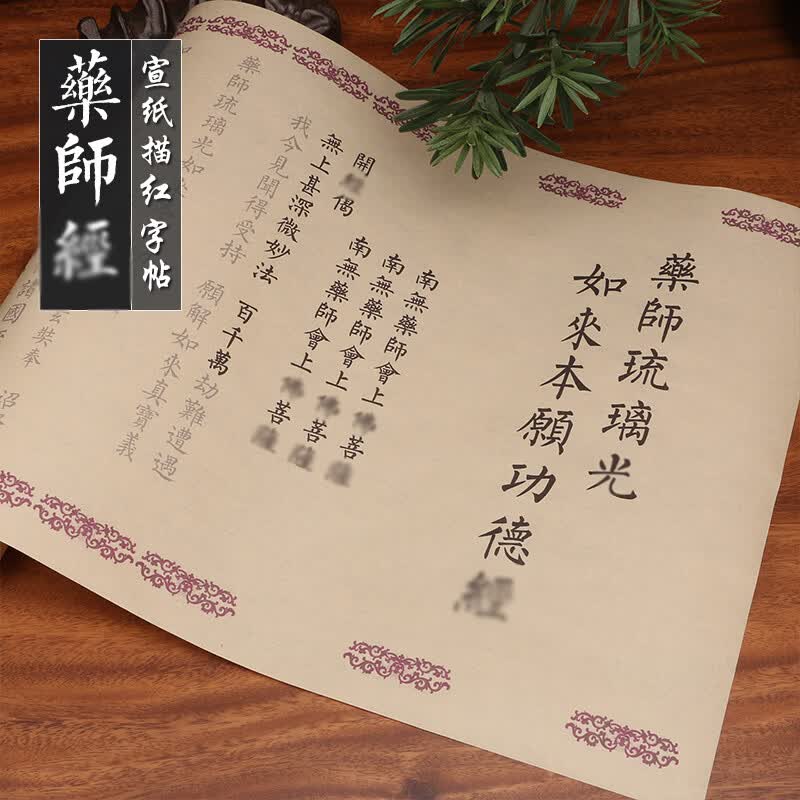 藥師經
宣紙描紅字帖
藥師琉璃光
如來本願功德經
南無藥師會上菩
南無藥師會上菩
南無藥師會上菩
開偈
無上甚深微妙法 百千萬劫難遭遇
我今見聞得受持 願解如來真實義
藥師琉璃光如
玄奘奉 詔
諸國